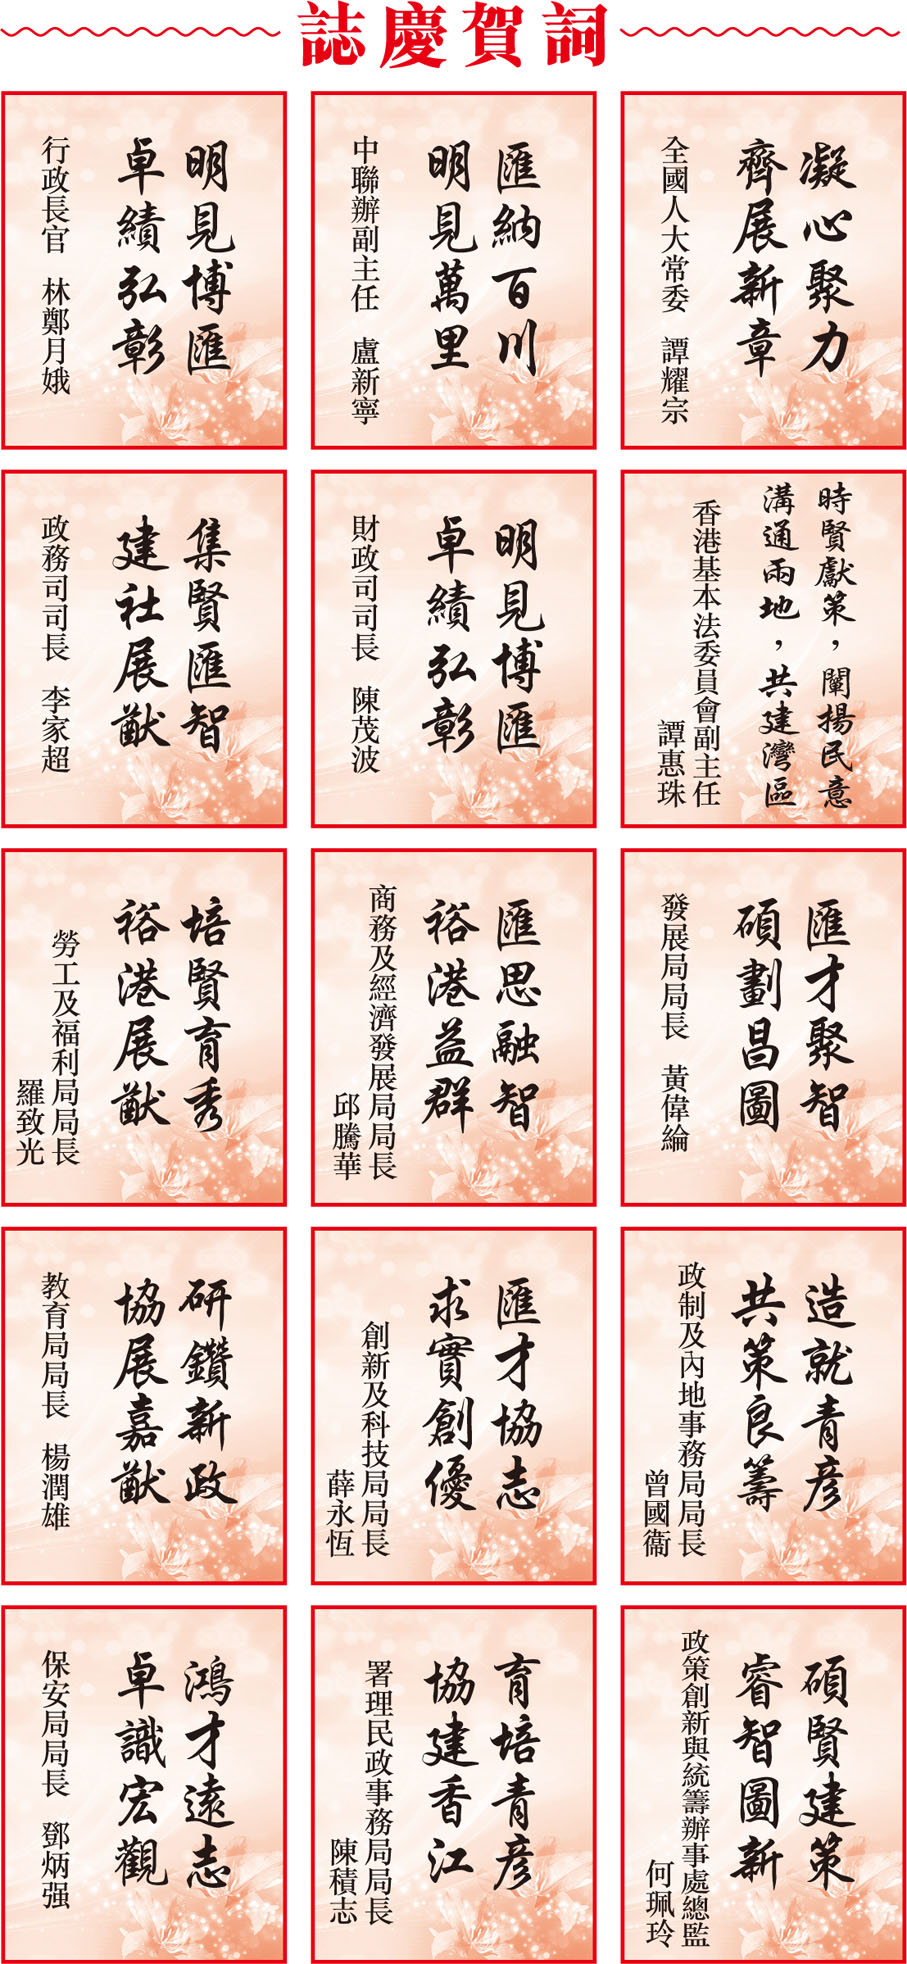 誌慶賀詞
凝心聚力
齊展新章
全國人大常委　譚耀宗
匯納百川
明見萬里
中聯辦副主任　盧新寧
明見博匯
卓績弘彰
行政長官　林鄭月娥
時賢獻策，闡揚民意
溝通兩地，共建灣區
香港基本法委員會副主任
譚惠珠
明見博匯
卓績弘彰
財政司司長　陳茂波
集賢匯智
建社展猷
政務司司長　李家超
匯才聚智
碩劃昌圖
發展局局長　黃偉綸
匯思融智
裕港益群
商務及經濟發展局局長
邱騰華
培賢育秀
裕港展猷
勞工及福利局局長
羅致光
造就青彥
共策良籌
政制及內地事務局局長
曾國衞
匯才協志
求實創優
創新及科技局局長
薛永恆
研鑽新政
協展嘉猷
教育局局長　楊潤雄
碩賢建策
睿智圖新
政策創新與統籌辦事處總監
何珮玲
育培青彥
協建香江
署理民政事務局局長
陳積志
鴻才遠志
卓識宏觀
保安局局長　鄧炳强